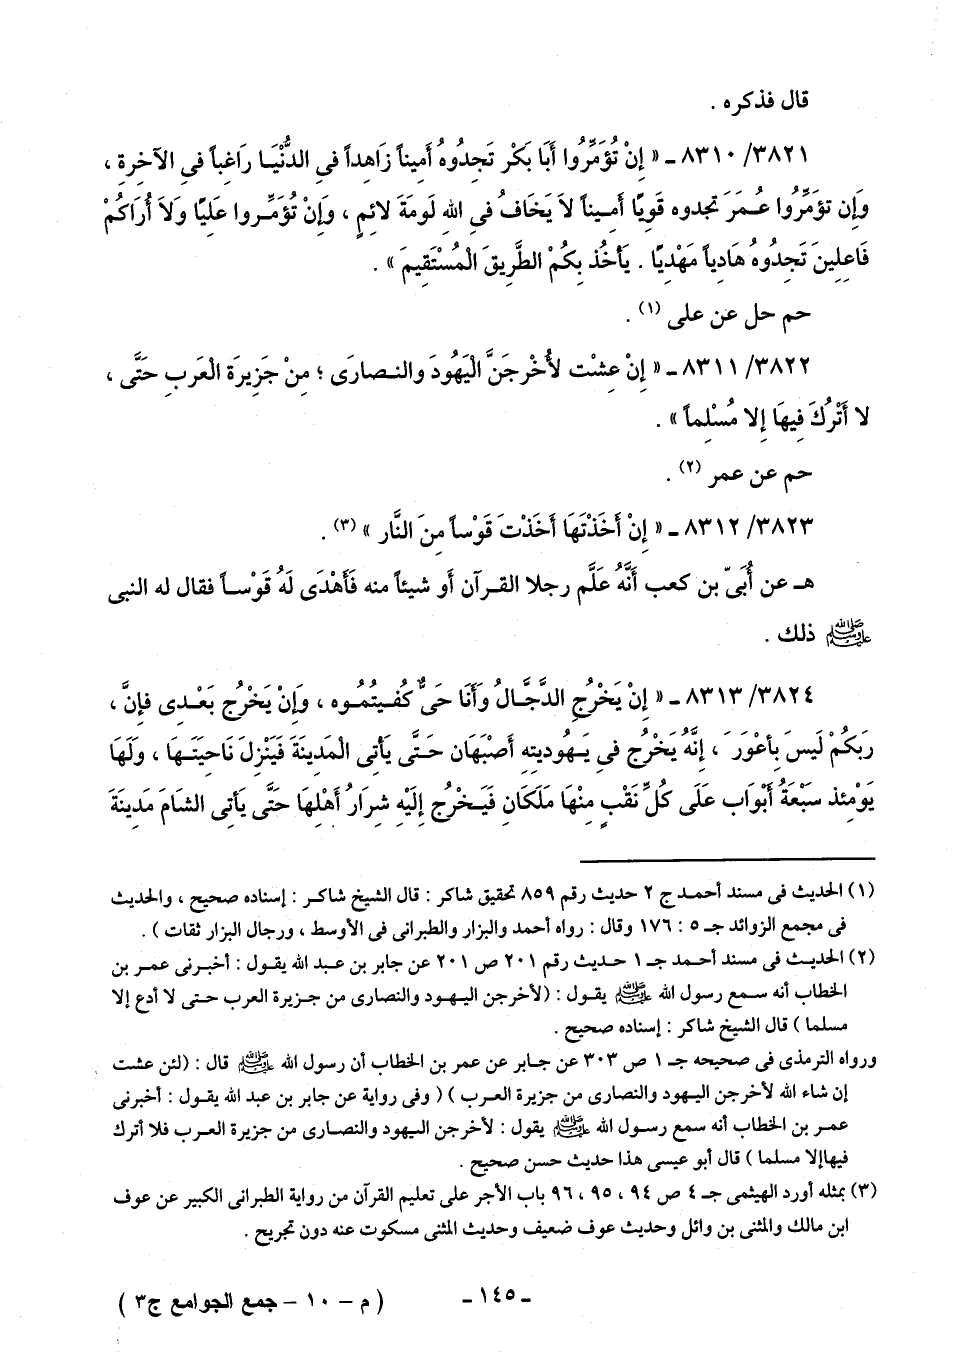 قال فذكره .
٣٨٢١/ ٨٣١٠ ـ « إِنْ تُؤَمِّرُوا أَبَا بَكْر تَجدُوهُ أَميناً زَاهداً فى الدُّنْيَا رَاغباً فى الآخرة ،
وَإِن تؤَمِّرُوا عُمَرَ تجدوه قَويًا أَميناً لاَ يَخَافُ فى الله لَومَةَ لائمٍ ، وَإِنْ تُؤَمِّروا عَليًا وَلاَ أُرَاكُمْ
فَاعِلِينَ تَجِدُوهُ هَادِياً مَهْدِيًا . يَأخُذ بِكُمْ الطَّرِيقَ الْمُسْتَقِيمَ » .
حم حل عن على (١) .
٣٨٢٢/ ٨٣١١ ـ « إِنْ عِشْت لأُخْرجَنَّ الْيَهُودَ والنصارَى ؛ منْ جَزيرَة العَرب حَتَّى ،
لا أَتْرُكَ فِيهَا إِلا مُسْلِماً » .
حم عن عمر (٢) .
٣٨٢٣/ ٨٣١٢ ـ « إِنْ أَخَذْتَهَا أَخَذْتَ قَوْساً مِنَ النَّار » (٣) .
هـ عن أُبَىّ بن كعب أَنَّهُ عَلَّم رجلا القرآن أو شيئاً منه فَأَهْدَى لَهُ قَوْساً فقال له النبى
ﷺ ذلك .
٣٨٢٤/ ٨٣١٣ ـ « إِنْ يَخْرُجِ الدَّجَّالُ وَأَنَا حَىٌّ كُفيتُمُوه ، وَإِنْ يَخْرُج بَعْدى فإِنَّ ،
رَبكُمْ لَيسَ بأعْوَرَ ، إِنَّهُ يَخْرُج فى يَهُوديته أَصْبَهَان حَتَّى يأتى الْمَدينَةَ فَيَنْزلَ نَاحيَتَها ، وَلَهَا
يَوْمئذ سَبْعَةُ أَبْوَاب عَلَى كُلِّ نَقْب منْهَا مَلَكَان فَيَخْرُج إِلَيْه شرَارُ أَهْلهَا حَتَّى يَأتى الشامَ مَدينَةَ
(١) الحديث فى مسند أحمد ج ٢ حديث رقم ٨٥٩ تحقيق شاكر : قال الشيخ شاكر : إسناده صحيح ، والحديث
فى مجمع الزوائد جـ ٥ : ١٧٦ وقال : رواه أحمد والبزار والطبرانى فى الأوسط ، ورجال البزار ثقات ) .
(٢) الحديث فى مسند أحمد جـ ١ حديث رقم ٢٠١ ص ٢٠١ عن جابر بن عبد الله يقول : أخبرنى عمر بن
الخطاب أنه سمع رسول الله ﷺ يقول : (لأخرجن اليهود والنصارى من جزيرة العرب حتى لا أدع إلا
مسلما ) قال الشيخ شاكر : إسناده صحيح .
ورواه الترمذى فى صحيحه جـ ١ ص ٣٠٣ عن جابر عن عمر بن الخطاب أن رسول الله ﷺ قال : (لئن عشت
إن شاء الله لأخرجن اليهود والنصارى من جزيرة العرب ) ( وفى رواية عن جابر بن عبد الله يقول : أخبرنى
عمر بن الخطاب أنه سمع رسول الله ﷺ يقول : لأخرجن اليهود والنصارى من جزيرة العرب فلا أترك
فيهاإلا مسلما ) قال أبو عيسى هذا حديث حسن صحيح .
(٣) بمثله أورد الهيثمى جـ ٤ ص ٩٤ ، ٩٥ ، ٩٦ باب الأجر على تعليم القرآن من رواية الطبرانى الكبير عن عوف
ابن مالك والمثنى بن وائل وحديث عوف ضعيف وحديث المثنى مسكوت عنه دون تجريح .
ـ ١٤٥ ـ
( م – ١٠ – جمع الجوامع ج٣ )